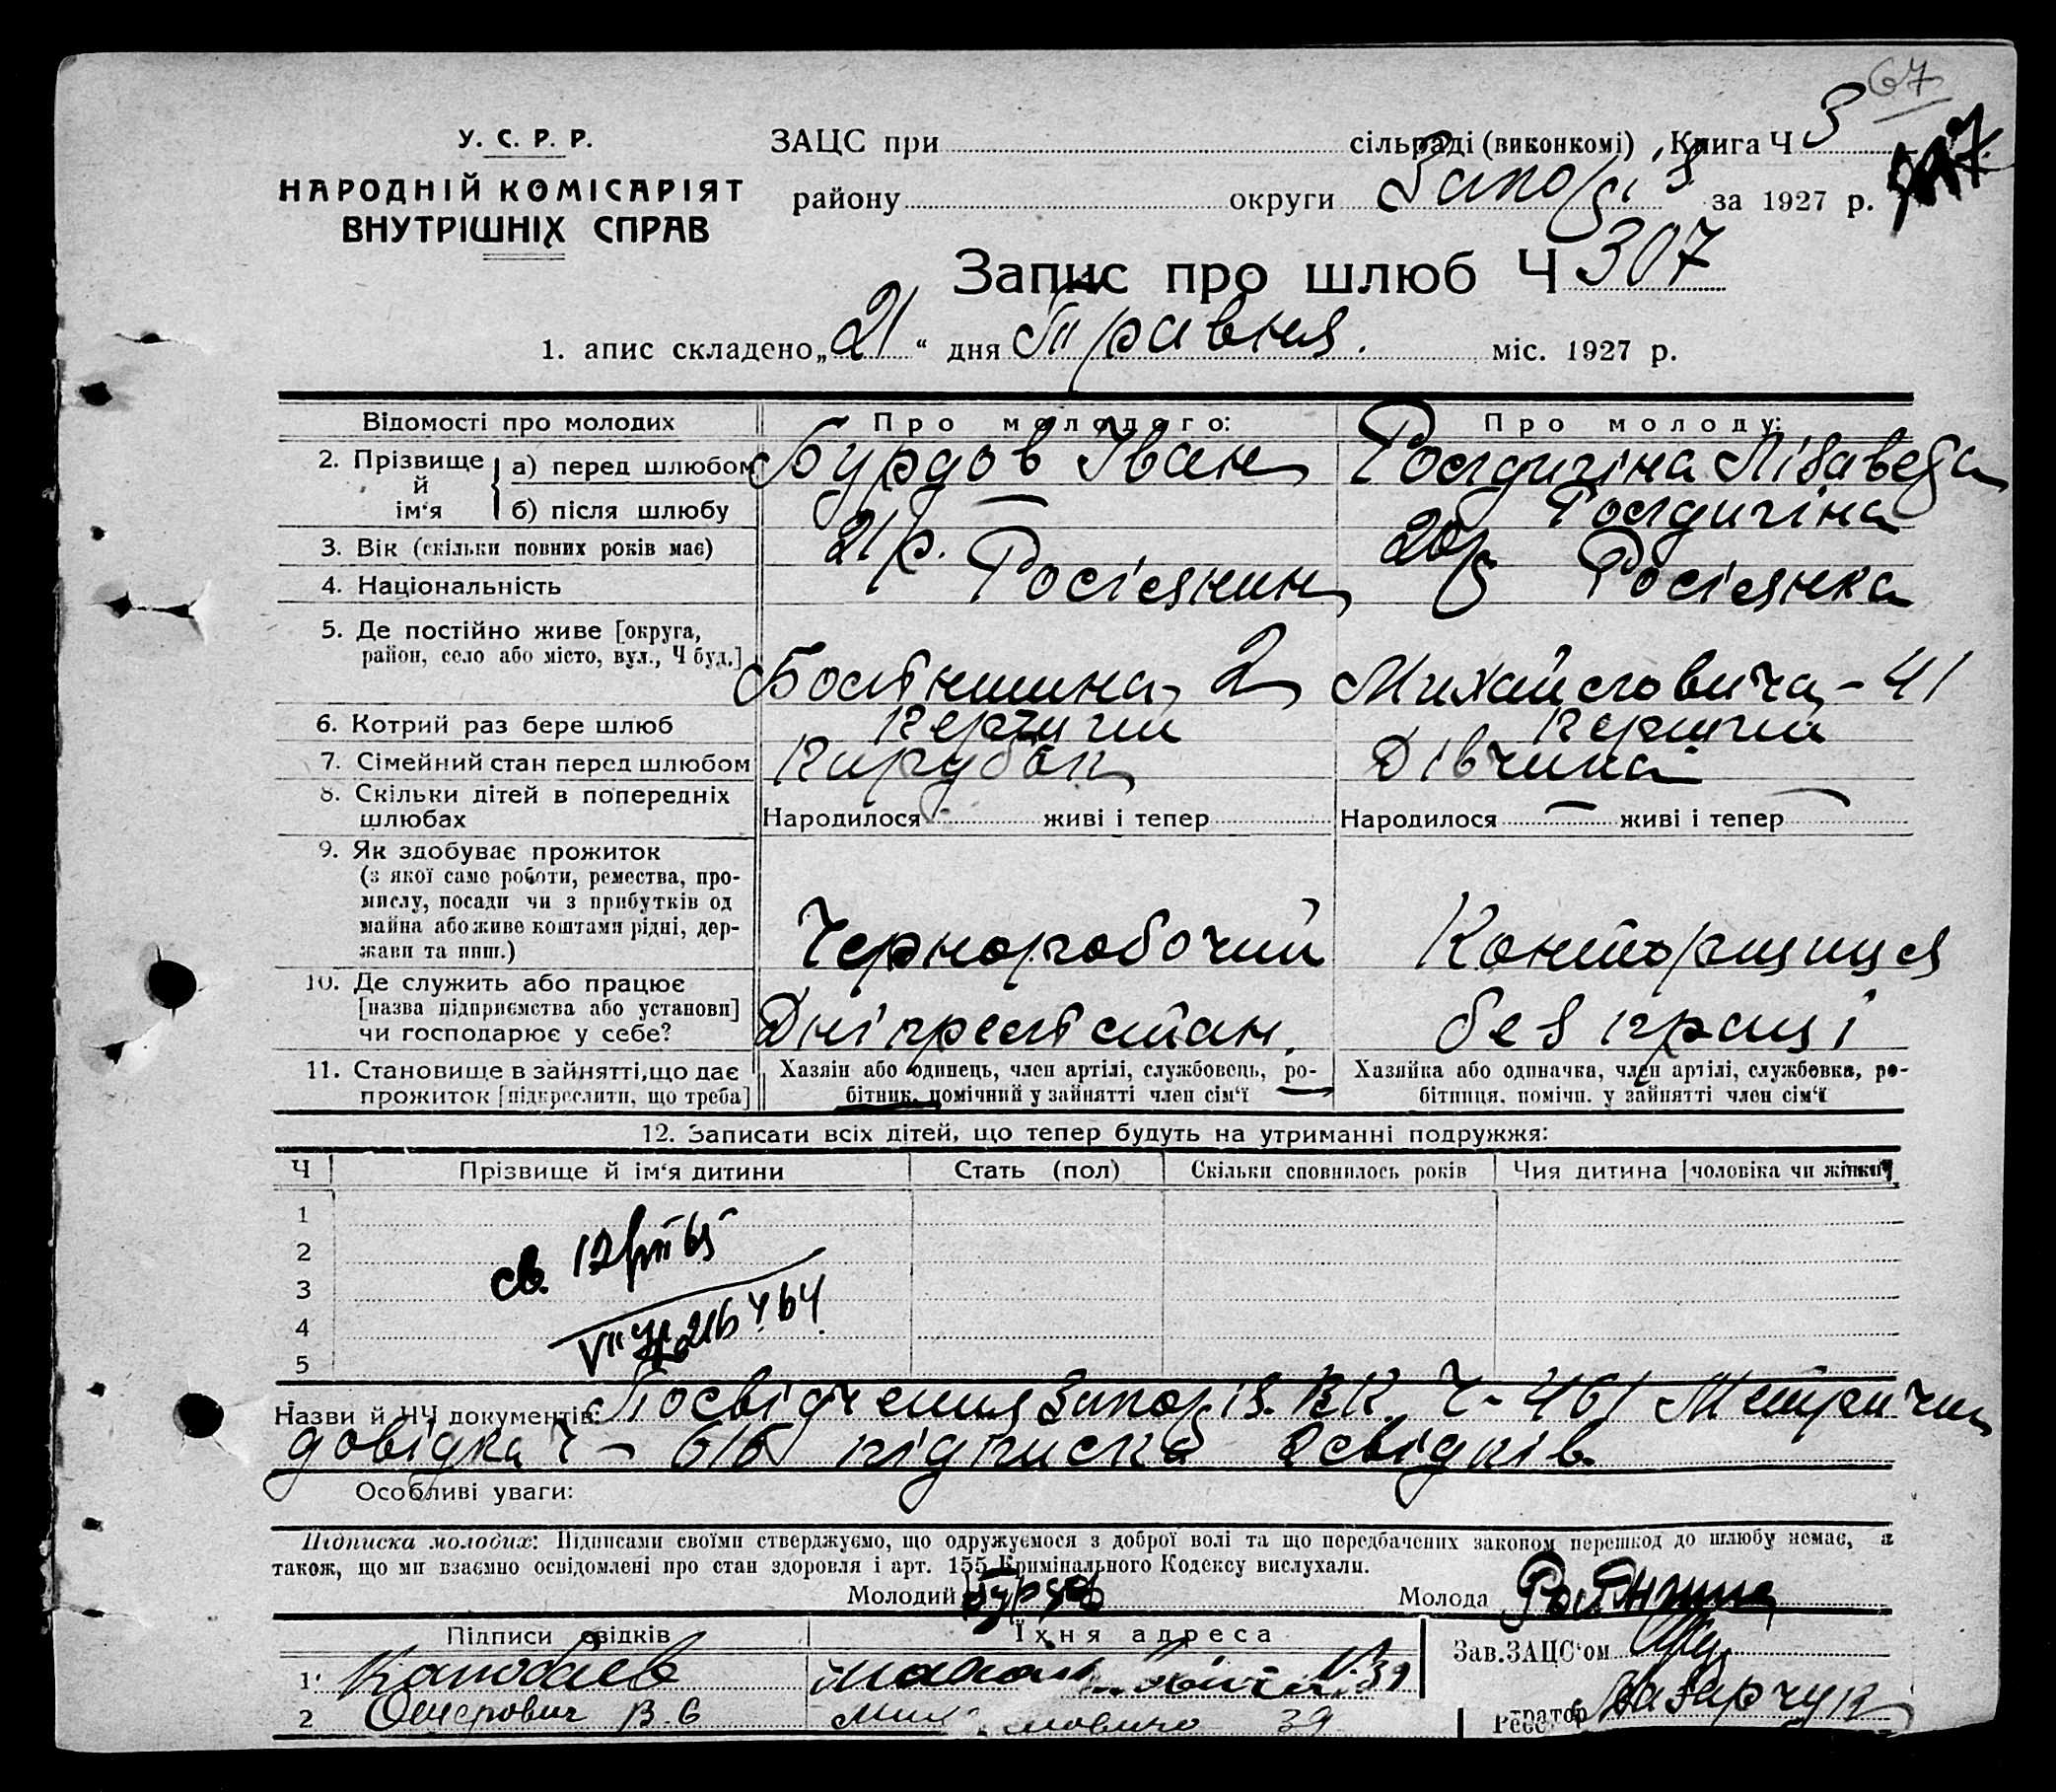 67
У. С. Р. Р.
НАРОДНІЙ КОМІСАРІЯТ
ВНУТРІШНІХ СПРАВ
ЗАЦС при сільраді (виконкомі) Книга Ч 3
району округи за 1927 р.
Запис про шлюб Ч 307
1. апис складено „21“ дня Травня. міс. 1927 р.
Відомості про молодих Про молодого: Про молоду:
2. Прізвище й ім‘я а) перед шлюбом Бурдов Іван
б) після шлюбу —
3. Вік (скільки повних років має) 21 р. 20 р
4. Національність Росіянин Росіянка
5. Де постійно живе [округа,
район, село або місто, вул., Ч буд.] 2 Михайловича - 41
6. Котрий раз бере шлюб Перший Перший
7. Сімейний стан перед шлюбом Парубок Дівчина
8. Скільки дітей в попередніх
шлюбах Народилося живі і тепер Народилося — живі і тепер —
9. Як здобуває прожиток
(з якої само роботи, ремества, про-
мислу, посади чи з прибутків од
майна або живе коштами рідні, дер-
жави та инш.) Черноробочий Конторщиця
10. Де служить або працює
[назва підприємства або установи]
чи господарює у себе? без праці
11. Становище в зайнятті, що дає
прожиток [підкреслити, що треба]
Хазяін або одинець, член артілі, службовець, ро-
бітник, помічний у зайнятті член сім‘ї
Хазяйка або одиначка, член артілі, службовка, ро-
бітниця, помічн. у зайнятті член сім‘ї
12. Записати всіх дітей, що тепер будуть на утриманні подружжя:
Ч Прізвище й ім‘я дитини Стать (пол) Скільки сповнилось років Чия дитина [чоловіка чи жінки]
1
2
3
4
5
Назви й ЧЧ документів: Посвідчення Запоріз. ВК Ч - 461 Метрична
довідка Ч - 616 підписка свідків
Особливі уваги:
Підписка молодих: Підписами своїми стверджуємо, що одружуємося з доброї волі та що передбачених законом перешкод до шлюбу немає, а
також, що ми взаємно освідомлені про стан здоровля і арт. 155 Кримінального Кодексу вислухали.
Молодий Бурдов Молода
Підписи свідків Їхня адреса Зав. ЗАЦС‘ом
1 39
2 Ошерович В. С 39